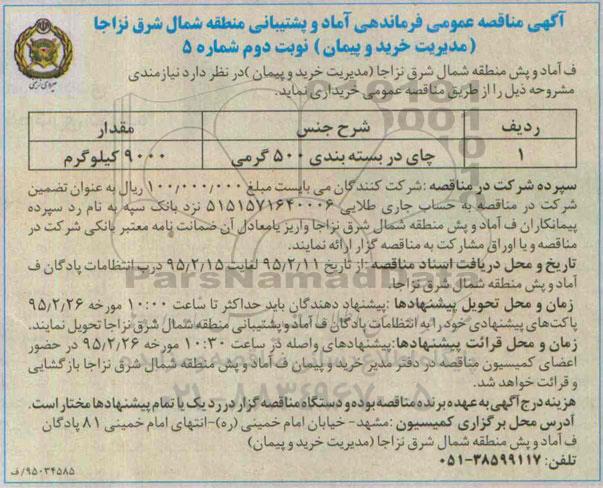 آگهی مناقصه عمومی فرماندهی آماد و پشتیبانی منطقه شمال شرق نزاجا
(مدیریت خرید و پیمان) نوبت دوم شماره ۵
ف آماد و پش منطقه شمال شرق نزاجا (مدیریت خرید و پیمان) در نظر دارد نیازمندی
مشروحه ذیل را از طریق مناقصه عمومی خریداری نماید.
ردیف شرح جنس مقدار
۱ چای در بسته بندی ۵۰۰ گرمی ۹۰۰۰ کیلوگرم
سپرده شرکت در مناقصه : شرکت کنندگان می بایست مبلغ ۱۰۰/۰۰۰/۰۰۰ ریال به عنوان تضمین
شرکت در مناقصه به حساب جاری طلایی ۵۱۵۱۵۷۱۶۴۰۰۰۶ نزد بانک سپه به نام رد سپرده
پیمانکاران ف آماد و پش منطقه شمال شرق نزاجا واریز یا معادل آن ضمانت نامه معتبر بانکی شرکت در
مناقصه و یا اوراق مشارکت به مناقصه گزار ارائه نمایند.
تاریخ و محل دریافت اسناد مناقصه : از تاریخ ۹۵/۲/۱۱ لغایت ۹۵/۲/۱۵ درب انتظامات پادگان ف
آماد و پش منطقه شمال شرق نزاجا.
زمان و محل تحویل پیشنهادها : پیشنهاد دهندگان باید حداکثر تا ساعت ۱۰:۰۰ مورخه ۹۵/۲/۲۶
پاکت‌های پیشنهادی خود را به انتظامات پادگان ف آماد و پشتیبانی منطقه شمال شرق نزاجا تحویل نمایند.
زمان و محل قرائت پیشنهادها: پیشنهادهای واصله در ساعت ۱۰:۳۰ مورخه ۹۵/۲/۲۶ در حضور
اعضای کمیسیون مناقصه در دفتر مدیر خرید و پیمان ف آماد و پش منطقه شمال شرق نزاجا بازگشایی
و قرائت خواهد شد.
هزینه درج آگهی به عهده برنده مناقصه بوده و دستگاه مناقصه گزار در رد یک یا تمام پیشنهادها مختار است.
آدرس محل برگزاری کمیسیون : مشهد - خیابان امام خمینی (ره) - انتهای امام خمینی ۸۱ پادگان
ف آماد و پش منطقه شمال شرق نزاجا (مدیریت خرید و پیمان)
تلفن: ۳۸۵۹۹۱۱۷-۰۵۱
۹۵۰۳۴۵۸۵/ف
ParsNamadData
۰۲۱-۸۸۳۴۹۶۷۰-۵